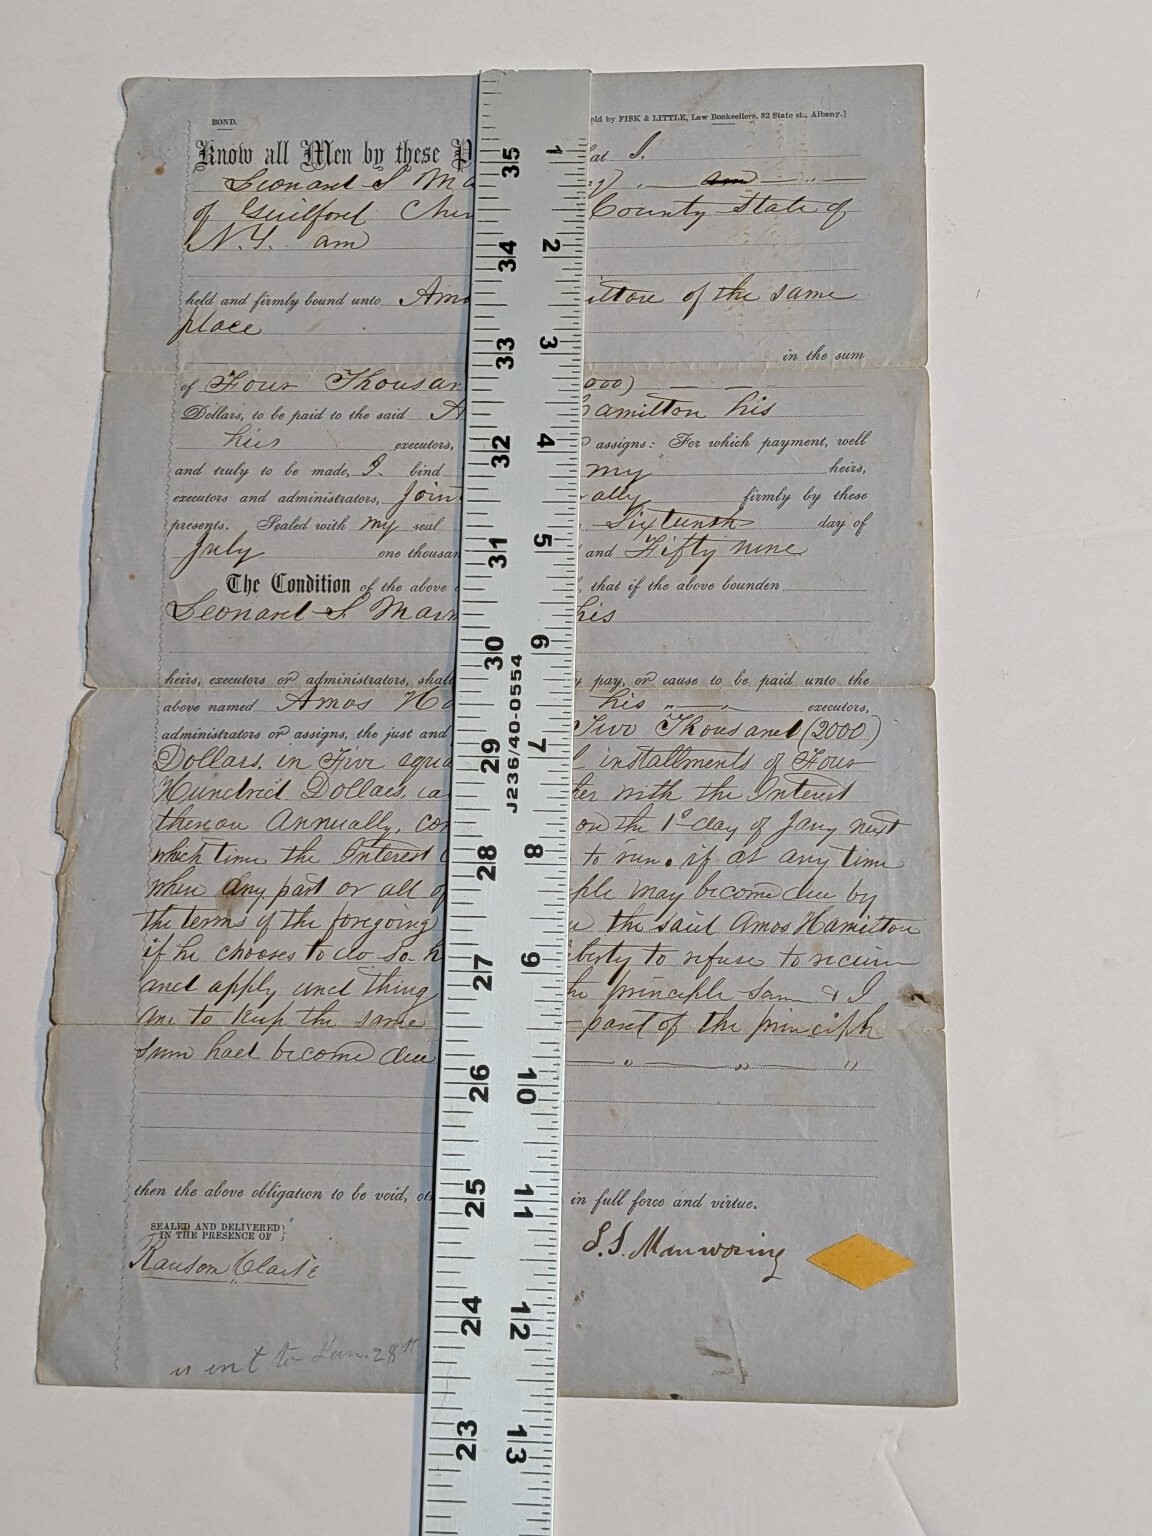 BOND.
by FISK & LITTLE, Law Booksellers, 82 State st., Albany.]
Know all Men by these P at I.
Leonard S Ma am
of Guilford Chen County State of
N.Y. am
held and firmly bound unto Amo ilton of the same
place
in the sum
of Four Thousan 000)
Dollars, to be paid to the said A Hamilton his
his executors, assigns: For which payment, well
and truly to be made, I bind my heirs,
executors and administrators, Join ally firmly by these
presents. Sealed with my seal Sixteenth day of
July one thousan and Fifty nine
The Condition of the above , that if the above bounden
Leonard S Man his
heirs, executors or administrators, shal y pay, or cause to be paid unto the
above named Amos Ha his executors,
administrators or assigns, the just and Two Thousand (2000)
Dollars. in Five l installments of Four
Hundred Dollars, ther with the Interest
thereon Annually, co on the 1st day of Jany next
which time the Interest to run. if at any time
when any part or all of ple may become due by
the terms of the foregoing the said Amos Hamilton
if he chooses to do so h iberty to refuse to receive
and apply thing the principle Sum & I
am to keep the same part of the principle
sum had become due
then the above obligation to be void, ot in full force and virtue.
SEALED AND DELIVERED
IN THE PRESENCE OF }
L. S. Manwaring
Ranson Clark
to Jan. 28th
35 34 33 32 31 30 29 28 27 26 25 24 23
1 2 3 4 5 6 7 8 9 10 11 12 13
J236/40-0554